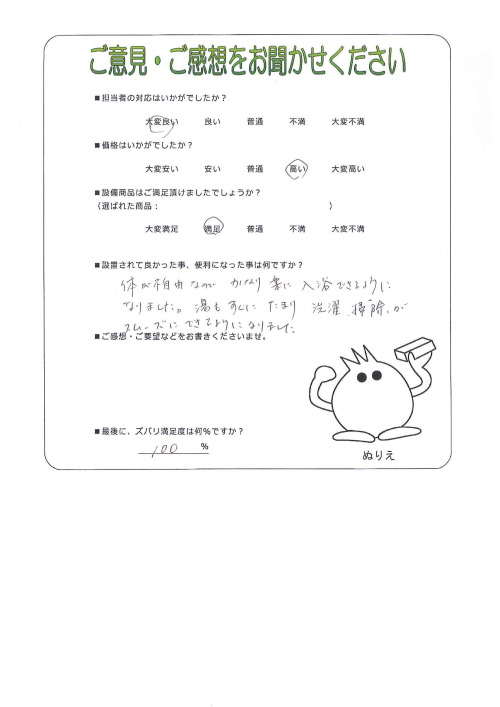 ご意見・ご感想をお聞かせください
■担当者の対応はいかがでしたか？
大変良い 良い 普通 不満 大変不満
■価格はいかがでしたか？
大変安い 安い 普通 高い 大変高い
■設備商品はご満足頂けましたでしょうか？
（選ばれた商品： ）
大変満足 満足 普通 不満 大変不満
■設置されて良かった事、便利になった事は何ですか？
体が不自由なので かなり楽に 入浴できるように
なりました。湯もすぐに たまり 洗濯、掃除、が
スムーズにできるようになりました
■ご感想・ご要望などをお書きくださいませ。
■最後に、ズバリ満足度は何％ですか？
100 ％
ぬりえ